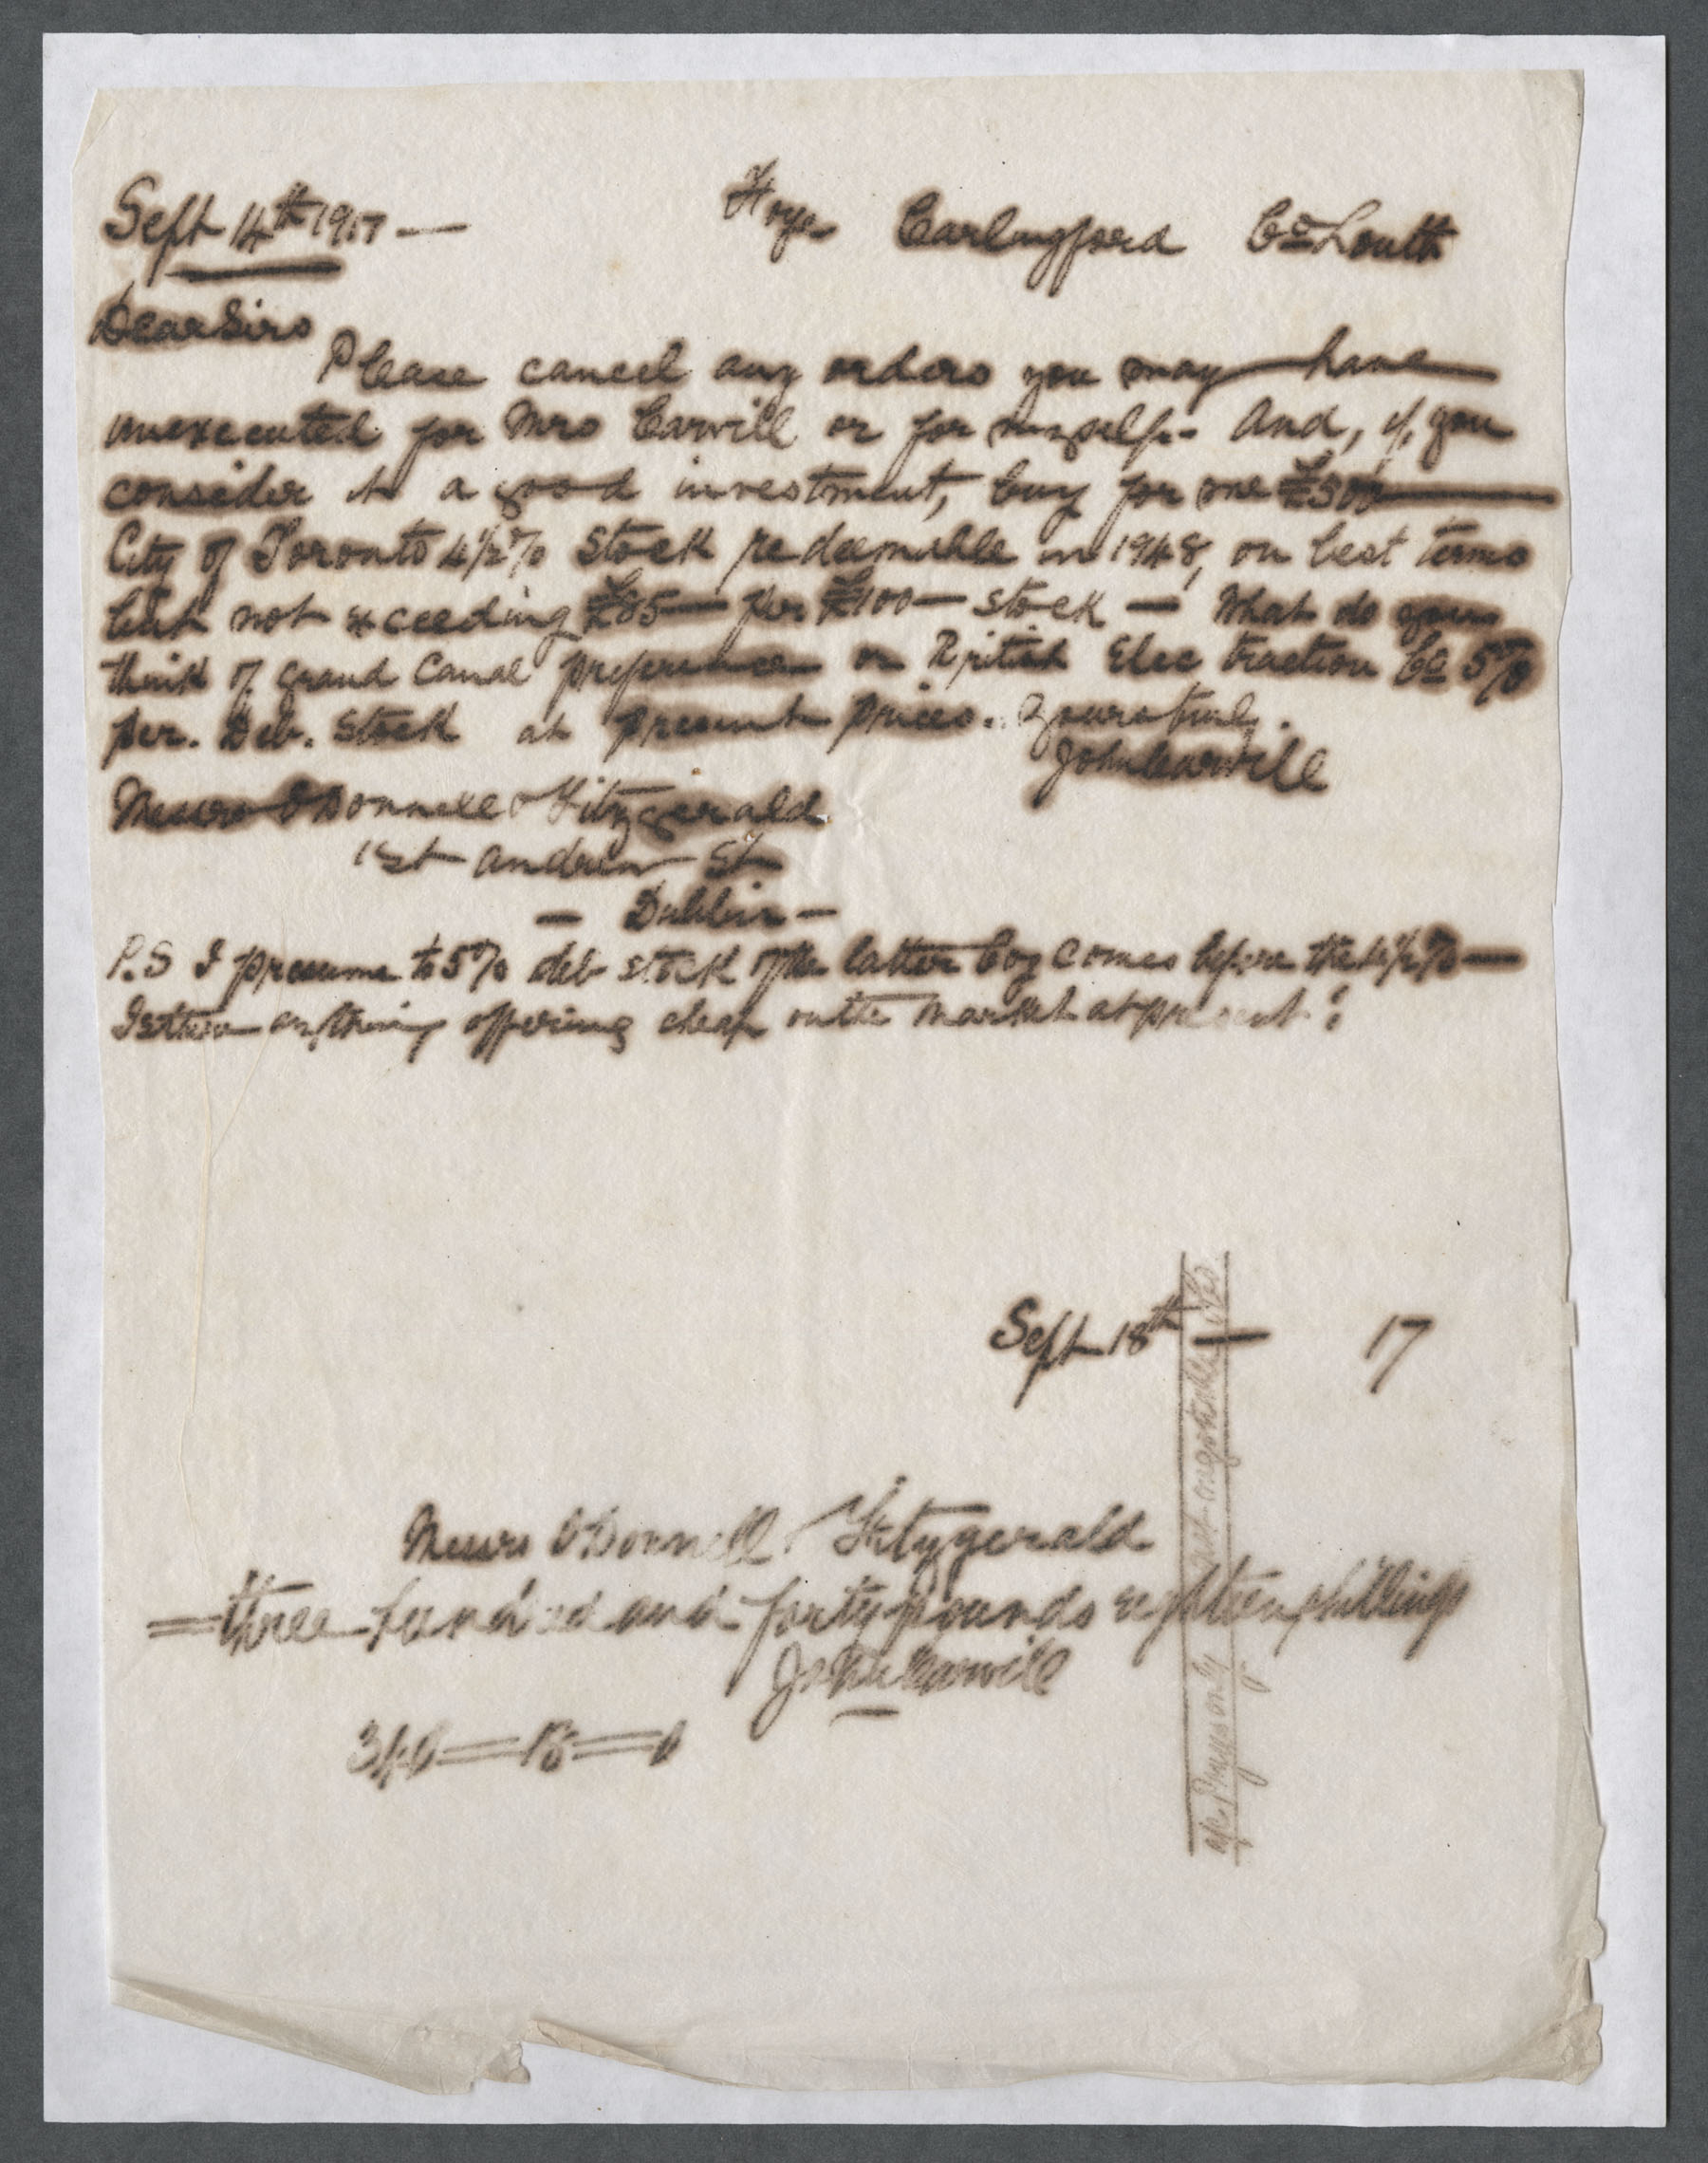 Sept 14th 1917 — Foye Carlingford Co Louth
Dear Sirs
Please cancel any orders you may have
unexecuted for Mrs Carvill or for myself - And, if, you
consider it a good investment, buy for me £500
City of Toronto 4½% Stock redeemable in 1948, on best terms
but not exceeding £85 — per £100 — stock — What do you
think of Grand Canal preference or British Elec traction Co 5%
per. Deb. Stock at present prices. Yours truly.
John Carvill
Messrs O'Donnell & Fitzgerald
1 St Andrew St
— Dublin —
P.S I presume the 5% deb stock of the latter Coy comes before the 4½% —
Is there anything offering cheap on the market at present?
Sept 18th — 17
Messrs O'Donnell Fitzgerald
= three hundred and forty pounds eighteen shillings
John Carvill
340 = 18 = 0
a/c Payees only not negotiable